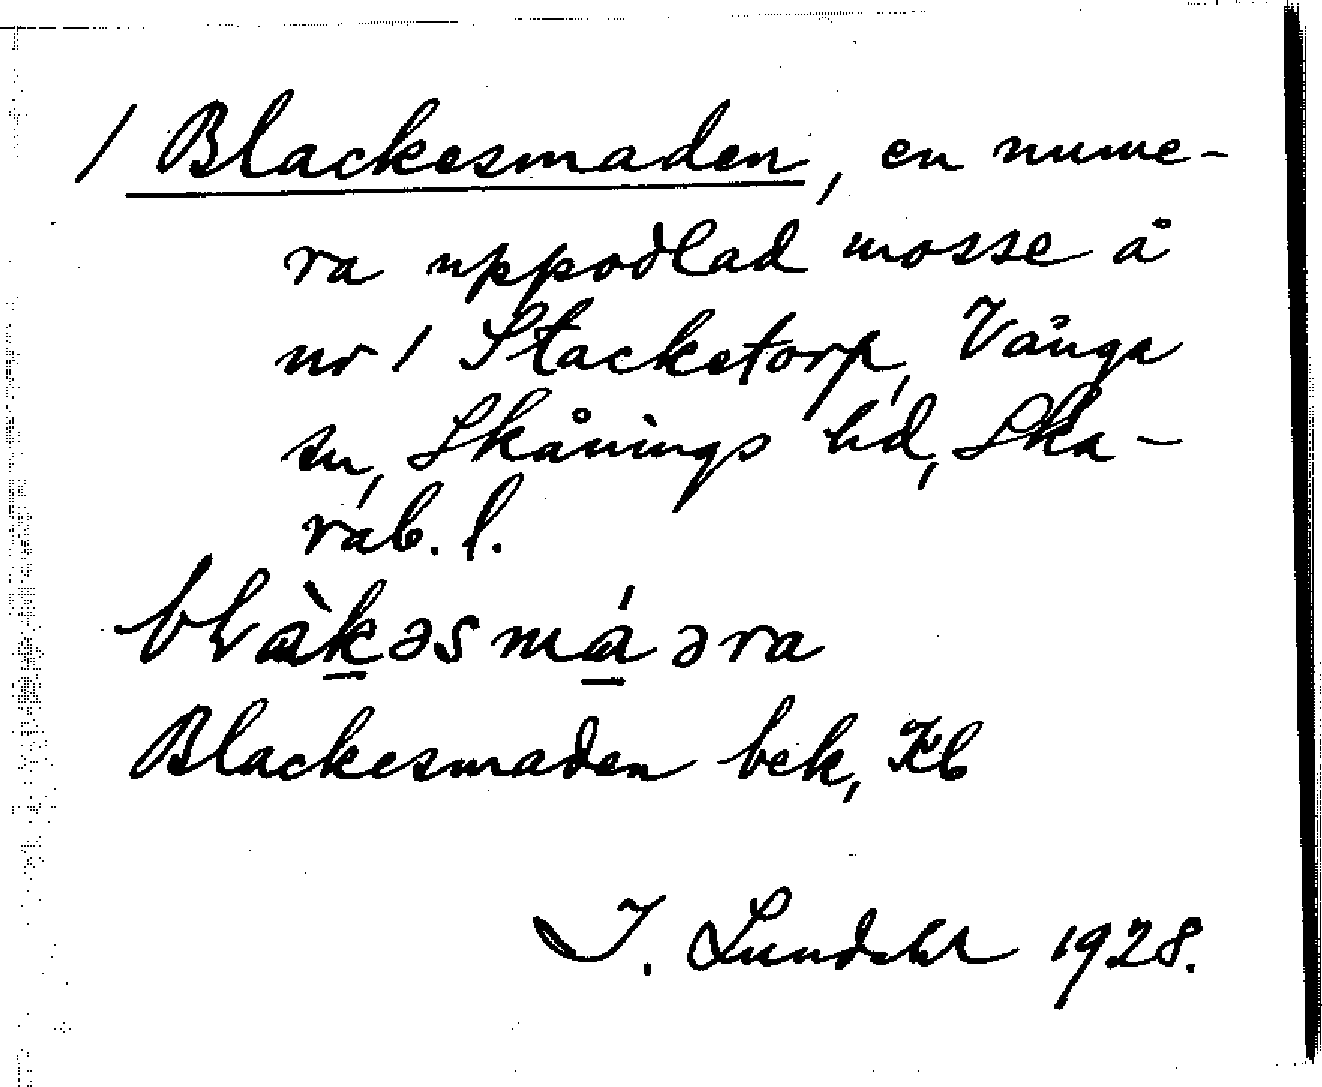 / Blackesmaden, en nume-
ra uppodlad mosse å
nr 1 Stacketorp, Vånga
sn, Skånings hd, Ska-
rab. l.
blàkəsmáəra
Blackesmaden bek, Kb
J. Lundahl 1928.